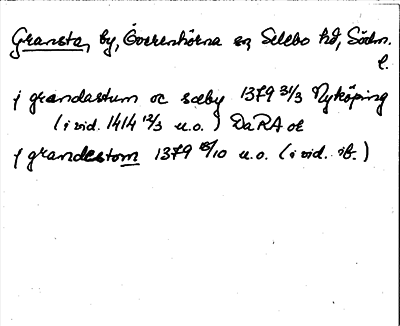 Gransta, by, Överenhörna sn, Selebo hd, Södm.
l.
j grandastum oc sæby 1379 31/3 Nyköping
(i vid. 1414 12/3 u.o.) DaRA oe
j grandestom 1379 18/10 u.o. (i vid. ib.)